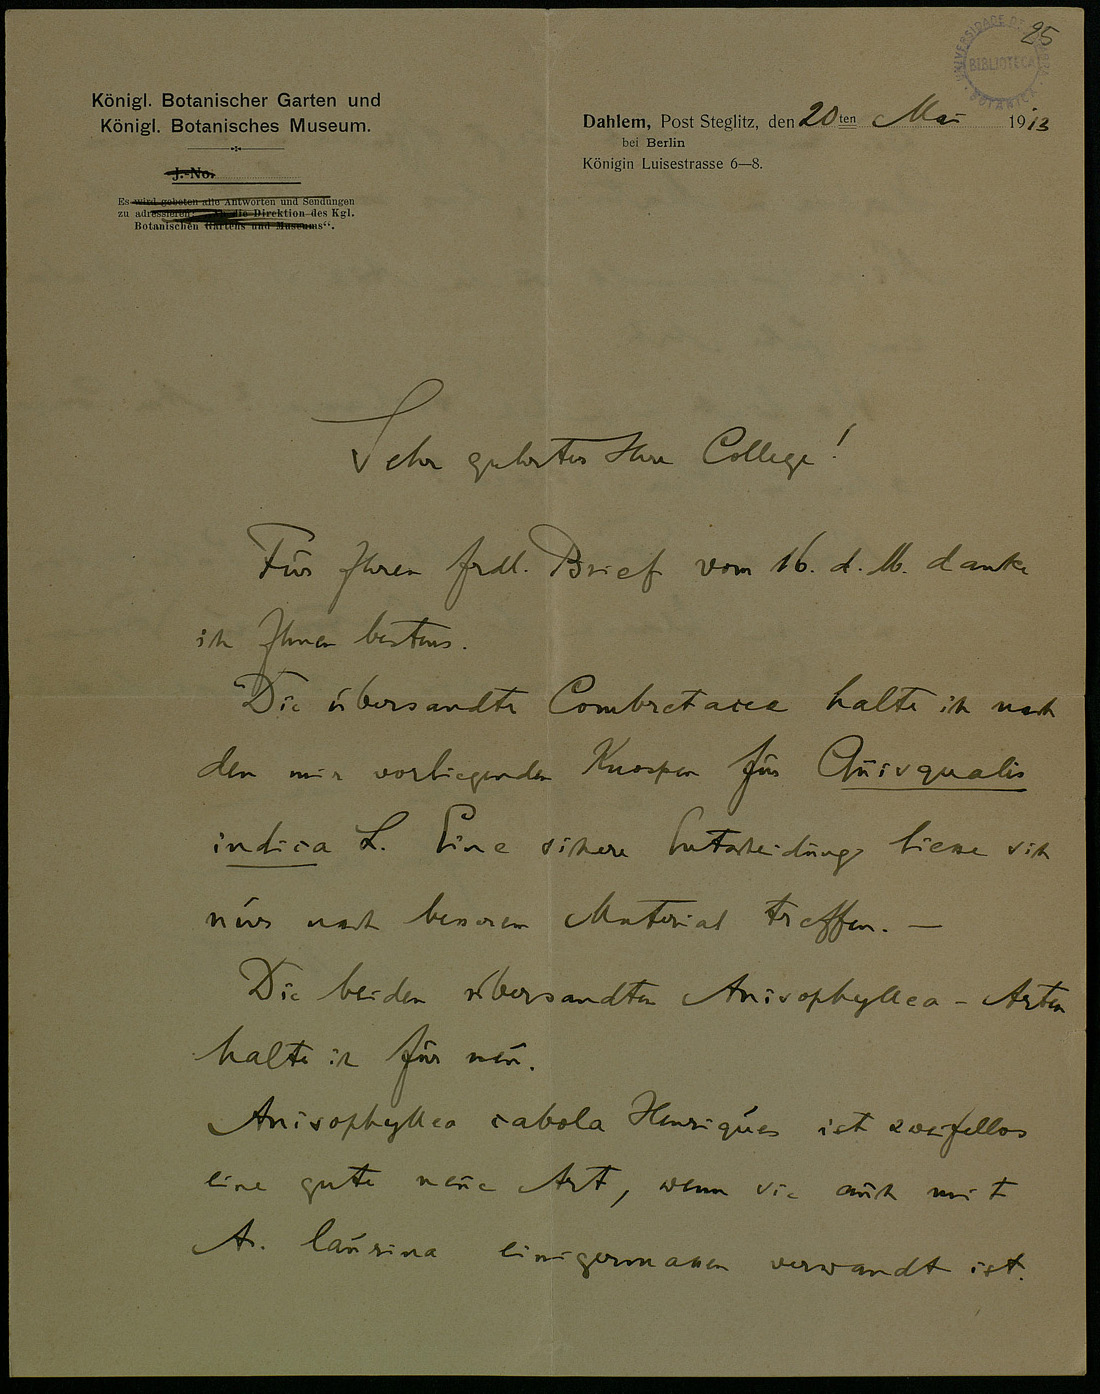 25
UNIVERSIDADE DE COIMBRA
BIBLIOTECA
BOTANICA
Königl. Botanischer Garten und
Königl. Botanisches Museum.
J.-No.
Es wird gebeten alle Antworten und Sendungen
zu adressieren: „An die Direktion des Kgl.
Botanischen Gartens und Museums“.
Dahlem, Post Steglitz, den 20ten Mai 1913
bei Berlin
Königin Luisestrasse 6—8.
Sehr geehrter Herr College!
Für Ihren frdl. Brief vom 16. d. M. danke
ich Ihnen bestens.
Die übersandte Combretacee halte ich nach
den mir vorliegenden Knospen für Quisqualis
indica L. Eine sichere Entscheidung liesse sich
nur nach besserem Material treffen. —
Die beiden übersandten Anisophyllea-Arten
halte ich für neu.
Anisophyllea cabola Henriques ist zweifellos
eine gute neue Art, wenn sie auch mit
A. laurina einigermassen verwandt ist.